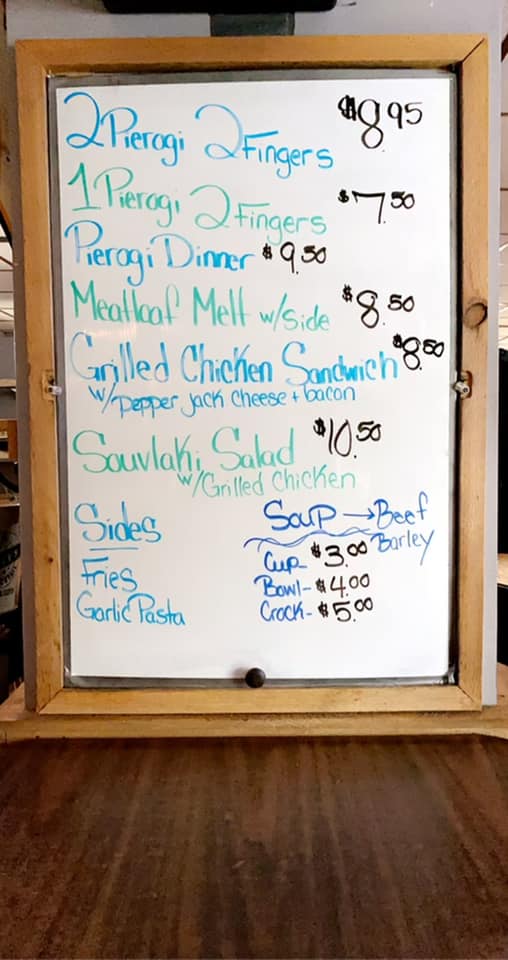 2 Pierogi 2 Fingers $8.95
1 Pierogi 2 Fingers $7.50
Pierogi Dinner $9.50
Meatloaf Melt w/side $8.50
Grilled Chicken Sandwich $8.50
w/pepper jack cheese + bacon
Souvlaki Salad $10.50
w/Grilled Chicken
Sides
Fries
Garlic Pasta
Soup → Beef
Barley
Cup $3.00
Bowl- $4.00
Crock- $5.00